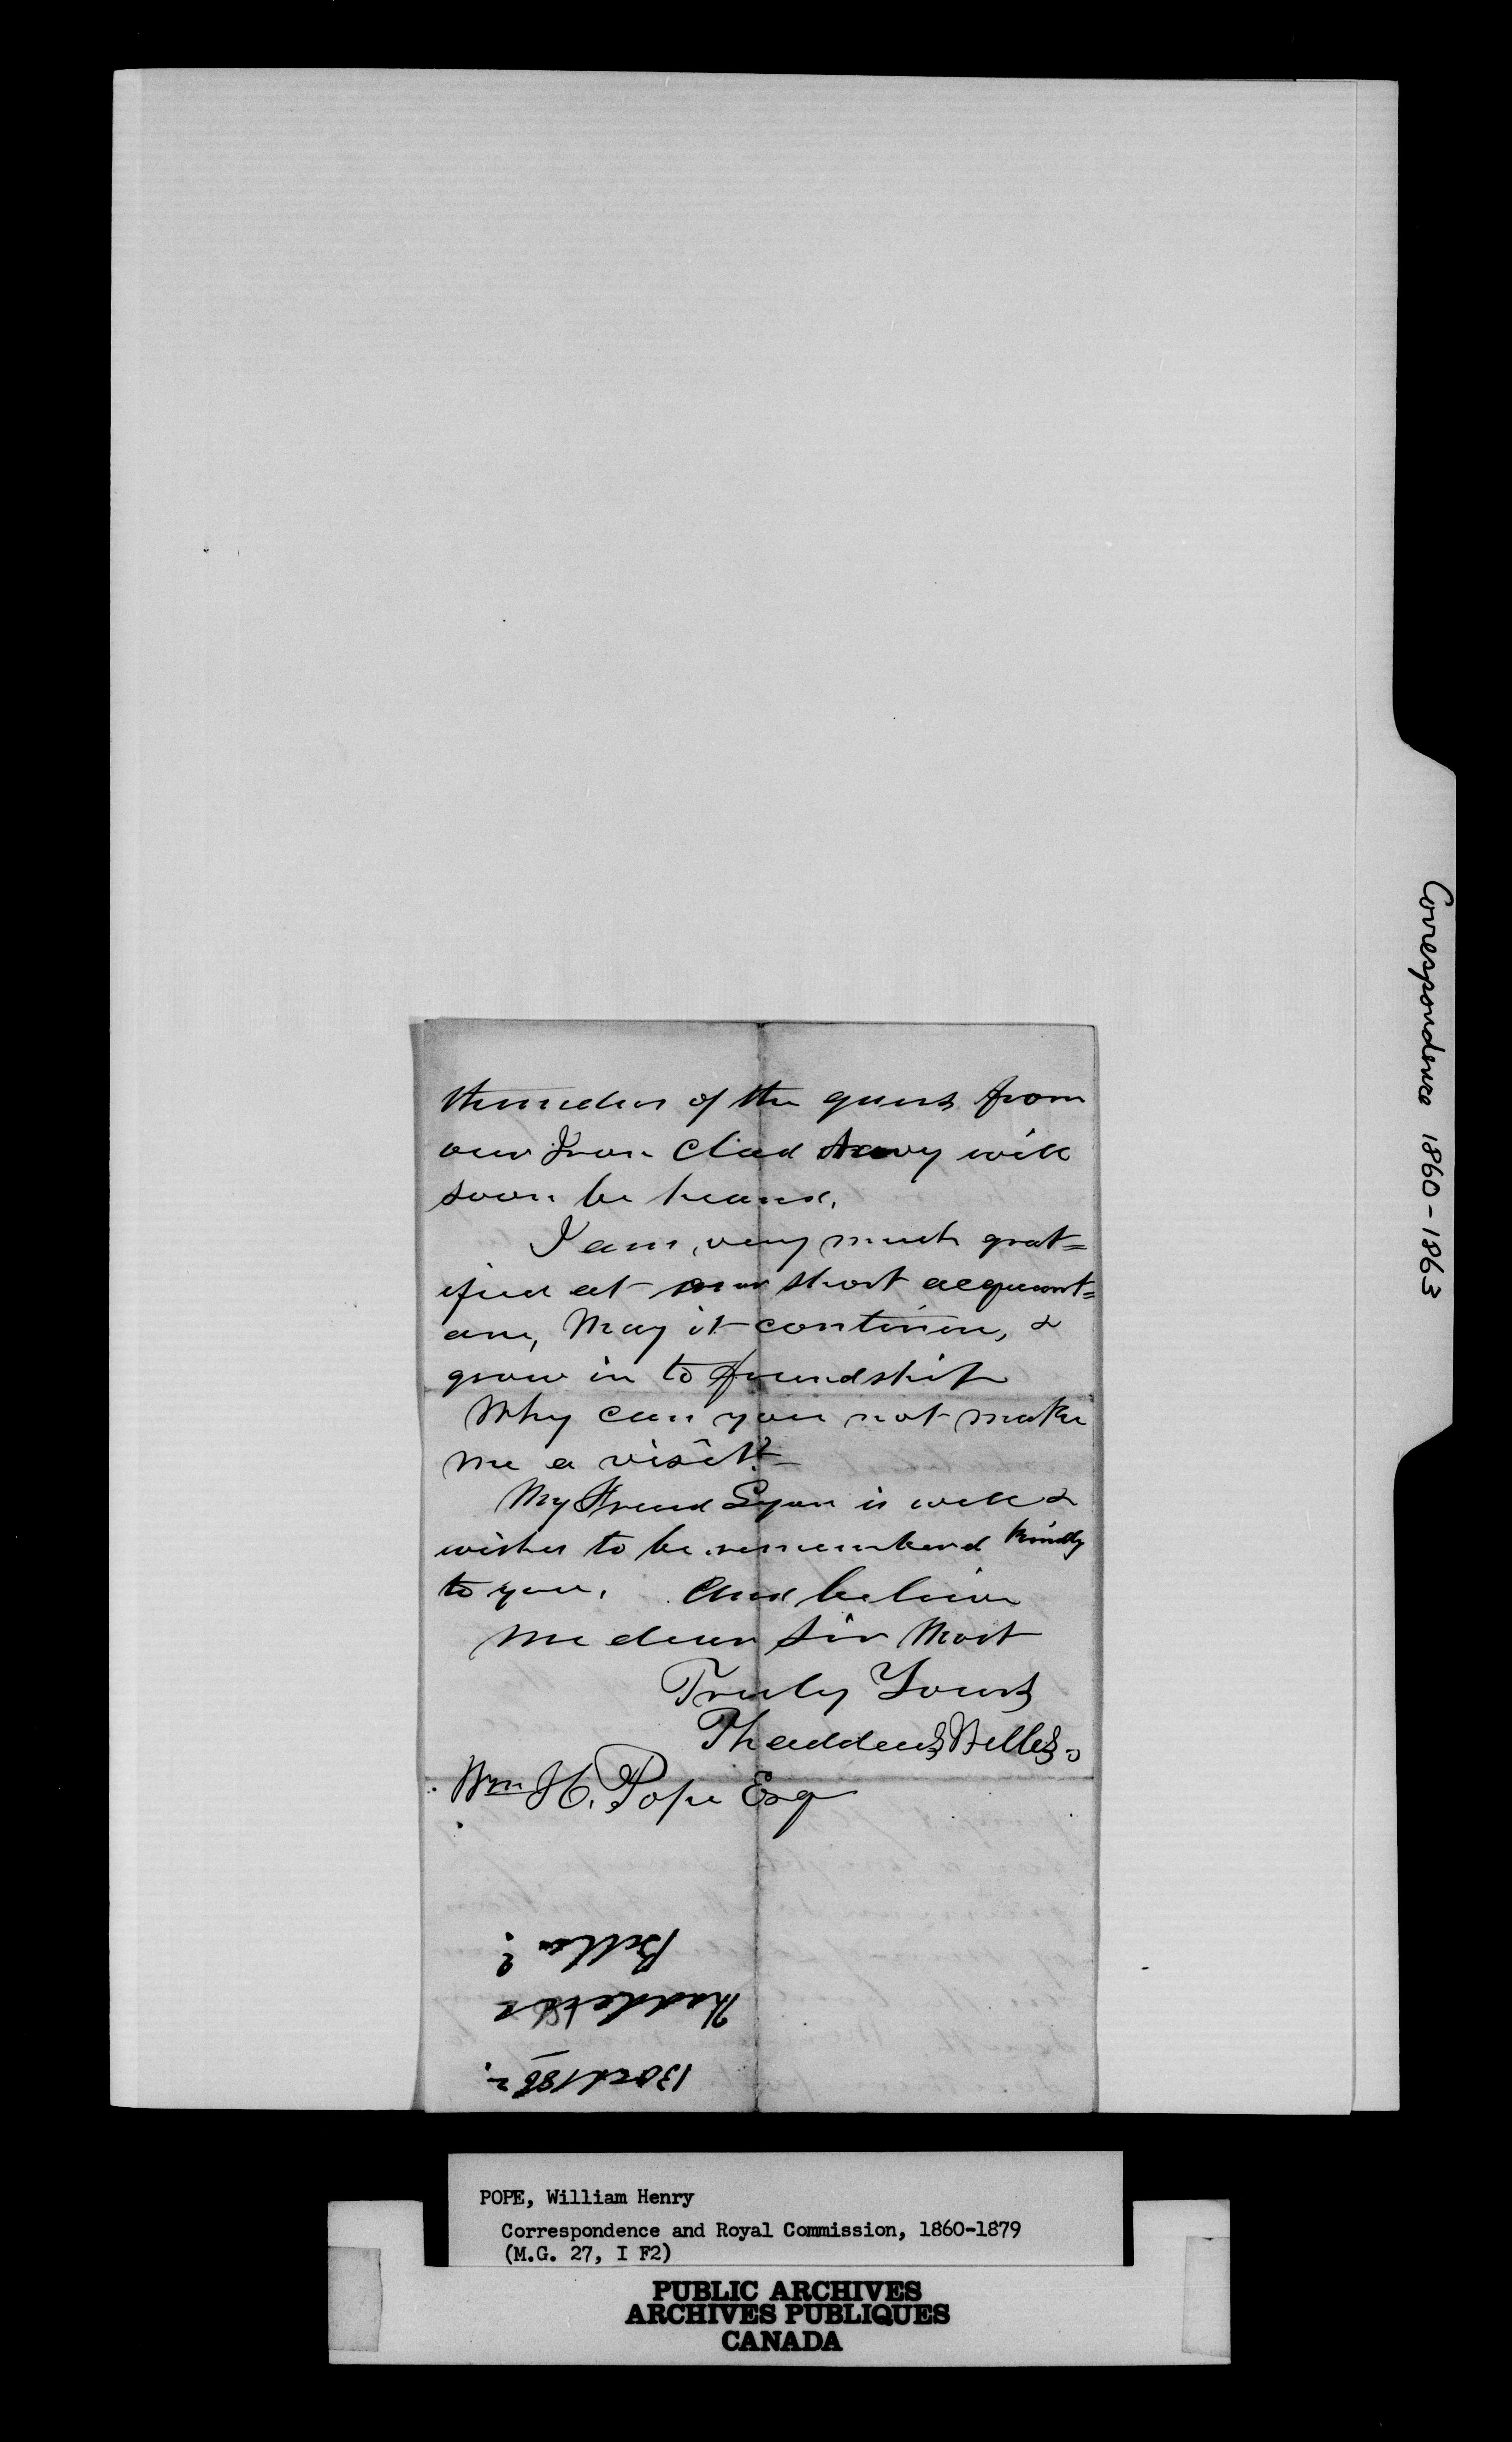 thunder of the guns from
our Iron Clad Navy will
soon be heard.
I am, very much grat=
ified at our short acquaint=
ance, May it continue, &
grow in to friendship
Why can you not make
me a visit?
My Friend Lyon is well &
wishes to be remembered kindly
to you. And believe
me dear Sir Most
Truly Yours
Thaddeus
Wm H. Pope Esq
13 Oct 1862.
Thaddeus
Correspondence 1860-1863
POPE, William Henry
Correspondence and Royal Commission, 1860-1879
(M.G. 27, I F2)
PUBLIC ARCHIVES
ARCHIVES PUBLIQUES
CANADA